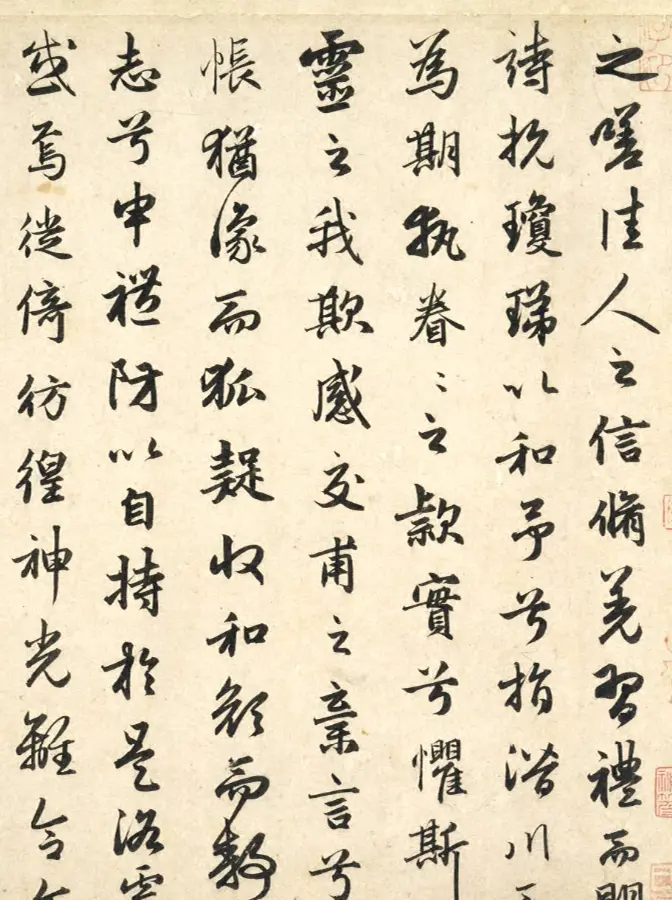 之嗟佳人之信脩羌習禮而明
詩抗瓊珶以和予兮指潛川
為期執眷〻之款實兮懼斯
靈之我欺感交甫之棄言兮
悵猶豫而狐疑收和顏而靜
志兮申禮防以自持於是洛靈
感焉徙倚彷徨神光離合